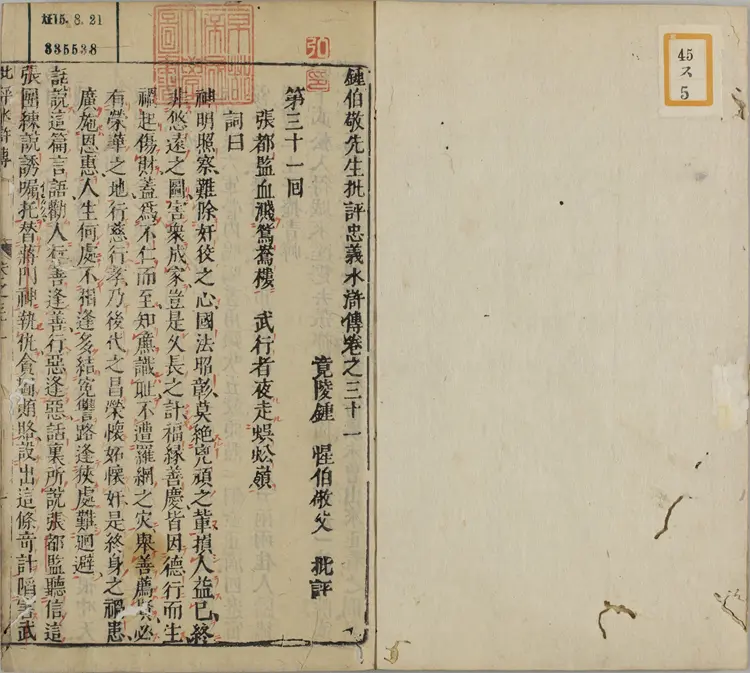 45
ス
5
大正15.8.21
335538
鍾伯敬先生批評忠義水滸傳卷之三十一
竟陵鍾 惺伯敬父 批評
第三十一回
張都監血濺鴛鴦樓 武行者夜走蜈蚣嶺
詞曰
神明照察難除奸狡之心國法昭彰莫絕兇頑之輩損人益已終
非悠遠之圖害衆成家豈是久長之計福緣善慶皆因德行而生
禍起傷財蓋爲不仁而至知廉識耻不遭羅網之灾舉善薦賢必
有榮華之地行慈行孝乃後代之昌榮懷妬懷奸是終身之禍患
廣施恩惠人生何處不相逢多結冤讐路逢狹處難迴避
話說這篇言語勸人行善逢善行惡逢惡話裏所說張都監聽信這
張團練說誘囑托替蔣門神執仇貪圖賄賂設出這條奇計陷害武
批評水滸傳